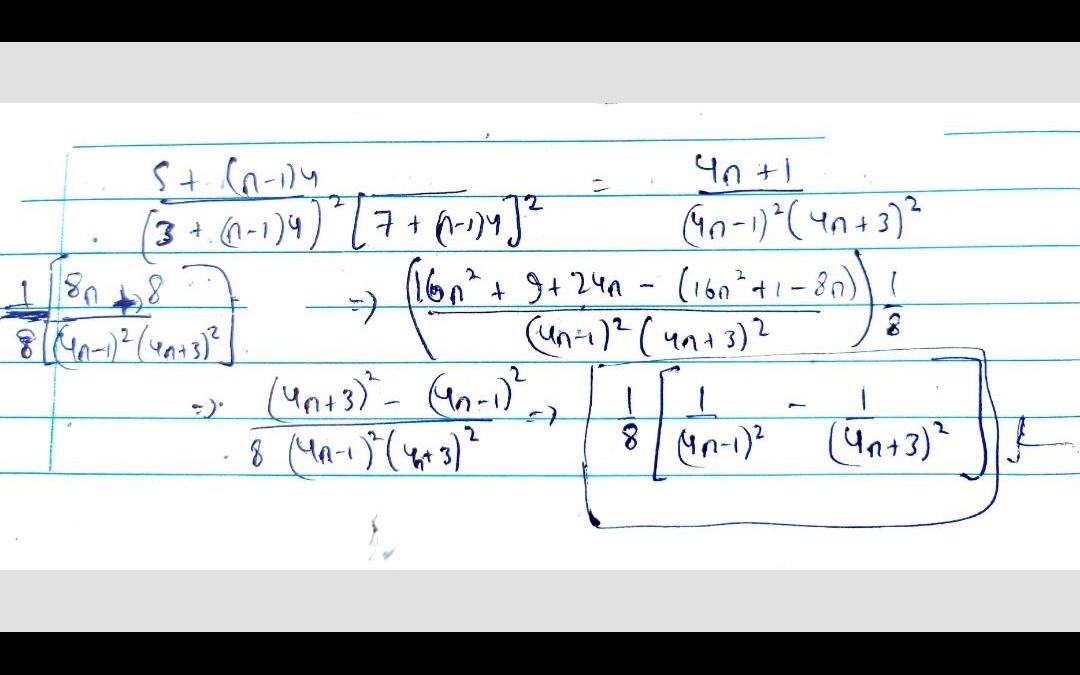 5 + (n-1)4 / (3 + (n-1)4)² [7 + (n-1)4]² = 4n + 1 / (4n-1)² (4n+3)²
1/8 [8n + 8 / (4n-1)² (4n+3)²] => (16n² + 9 + 24n - (16n² + 1 - 8n) / (4n-1)² (4n+3)²) 1/8
=> (4n+3)² - (4n-1)² / 8 (4n-1)² (4n+3)² => 1/8 [1/(4n-1)² - 1/(4n+3)²]